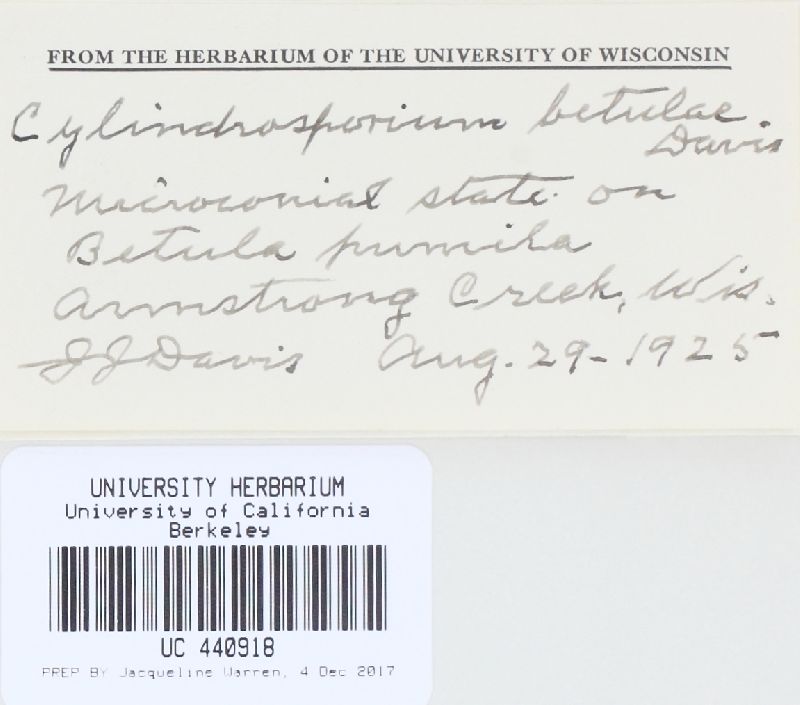 FROM THE HERBARIUM OF THE UNIVERSITY OF WISCONSIN
Cylindrosporium betulae.
Davis
Microconial state on
Betula pumila
Armstrong Creek, Wis.
JJ Davis Aug. 29-1925
UNIVERSITY HERBARIUM
University of California
Berkeley
UC 440918
PREP BY Jacqueline Warren, 4 Dec 2017